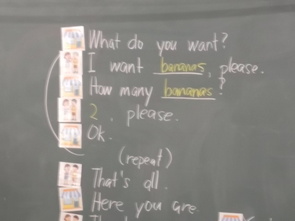 What do you want?
I want bananas, please.
How many bananas?
2, please.
Ok.
(repeat)
That's all.
Here you are